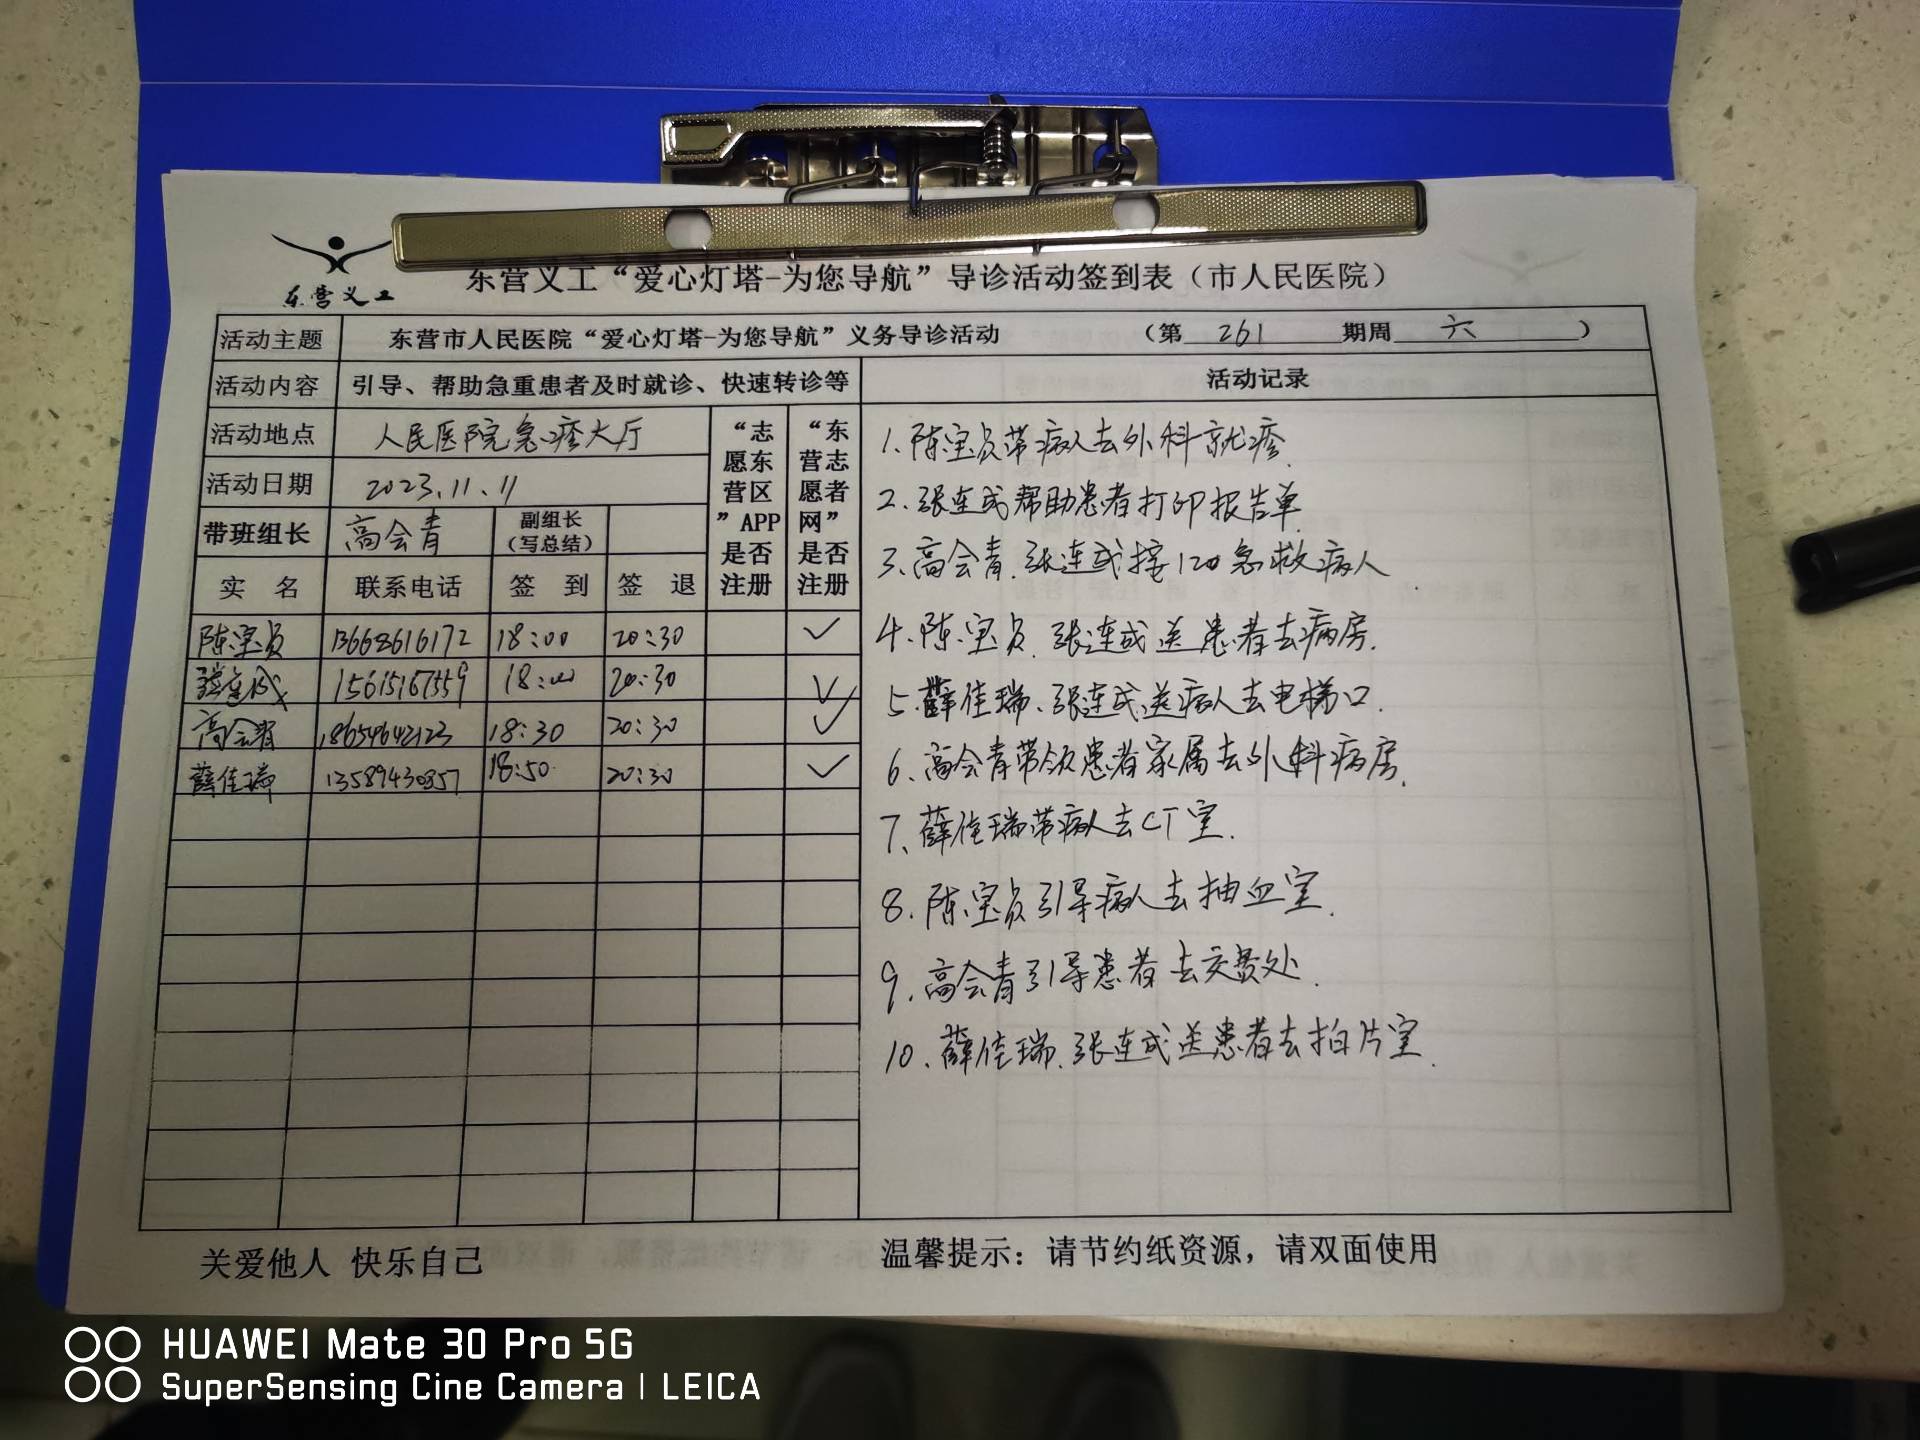 东营义工
东营义工“爱心灯塔-为您导航”导诊活动签到表（市人民医院）
活动主题 东营市人民医院“爱心灯塔-为您导航”义务导诊活动 （第 261 期周 六 ）
活动内容 引导、帮助急重患者及时就诊、快速转诊等 活动记录
活动地点 人民医院急诊大厅
活动日期 2023.11.11
带班组长 高会青 副组长（写总结）
“志愿东营区”APP是否注册
“东营志愿者网”是否注册
实 名 联系电话 签 到 签 退
陈宝员 13668616172 18:00 20:30 ✓
张连成 15615167559 18:00 20:30 ✓
高会青 18654642123 18:30 20:30 ✓
薛佳瑞 13589430857 18:50 20:30 ✓
1.陈宝员带病人去外科就诊.
2.张连成帮助患者打印报告单.
3.高会青.张连成接120急救病人.
4.陈宝员.张连成送患者去病房.
5.薛佳瑞、张连成送病人去电梯口.
6.高会青带领患者家属去外科病房.
7.薛佳瑞带病人去CT室.
8.陈宝员引导病人去抽血室.
9.高会青引导患者去交费处.
10.薛佳瑞.张连成送患者去拍片室.
关爱他人 快乐自己
温馨提示：请节约纸资源，请双面使用
HUAWEI Mate 30 Pro 5G
SuperSensing Cine Camera | LEICA